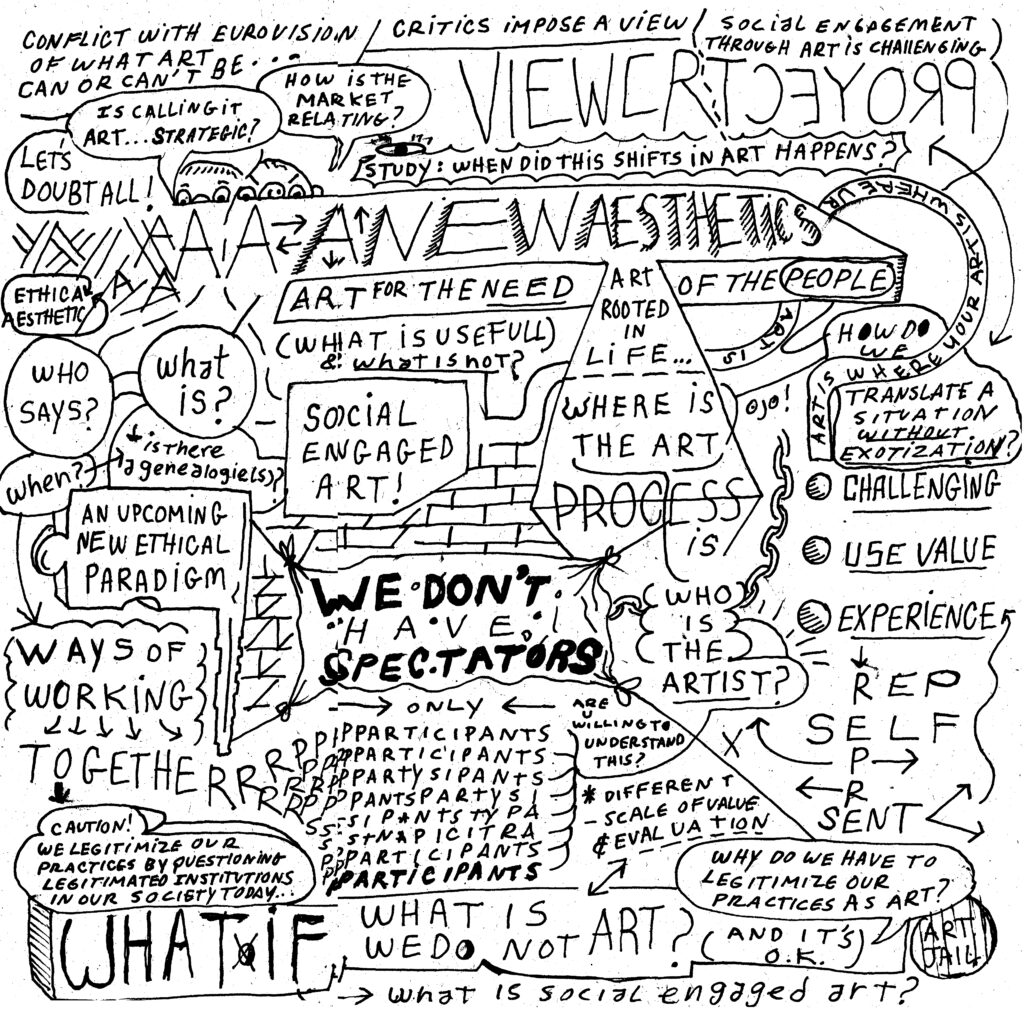 CONFLICT WITH EUROVISION
OF WHAT ART
CAN OR CAN'T BE....
CRITICS IMPOSE A VIEW
SOCIAL ENGAGEMENT
THROUGH ART IS CHALLENGING
IS CALLING IT
ART...STRATEGIC?
HOW IS THE
MARKET
RELATING?
VIEWCRTCEYORP
LET'S
DOUBT ALL!
STUDY: WHEN DID THIS SHIFTS IN ART HAPPENS?
A A A NEW AESTHETICS
A A
ETHICAL
AESTHETIC
ART FOR THE NEED
OF THE PEOPLE
ART IS WHERE UR
ART IS WHERE YOUR ART IS
ART IS
(WHAT IS USEFULL)
& what is not?
ART
ROOTED
IN
LIFE...
WHERE IS
THE ART
PROCESS
is
OJO!
HOW DO
WE
TRANSLATE A
SITUATION
WITHOUT
EXOTIZATION?
WHO
SAYS?
what
is?
when?
is there
a genealogie(s)?
SOCIAL
ENGAGED
ART!
AN UPCOMING
NEW ETHICAL
PARADIGM
CHALLENGING
USE VALUE
EXPERIENCE
WE DON'T
HAVE
SPECTATORS
WHO
IS
THE
ARTIST?
WAYS OF
WORKING
TOGETHERRR
ONLY
RPPIPPARTICIPANTS
RPPPPARTICIPANTS
RPPPPARTYSIPANTS
RRPPPANTSPARTYSI
SS-SIPANTSTYPA
S-STNAPICITRA
PPPARTICIPANTS
PPPARTICIPANTS
ARE
U
WILLING TO
UNDERSTAND
THIS?
* DIFFERENT
- SCALE OF VALUE
& EVALUATION
X
REP
SELF
P
R
SENT
CAUTION!
WE LEGITIMIZE OUR
PRACTICES BY QUESTIONING
LEGITIMATED INSTITUTIONS
IN OUR SOCIETY TODAY...
WHAT IF
WHAT IS
WE DO NOT ART?
WHY DO WE HAVE TO
LEGITIMIZE OUR
PRACTICES AS ART?
(AND IT'S)
O.K.
ART
JAIL
what is social engaged art?